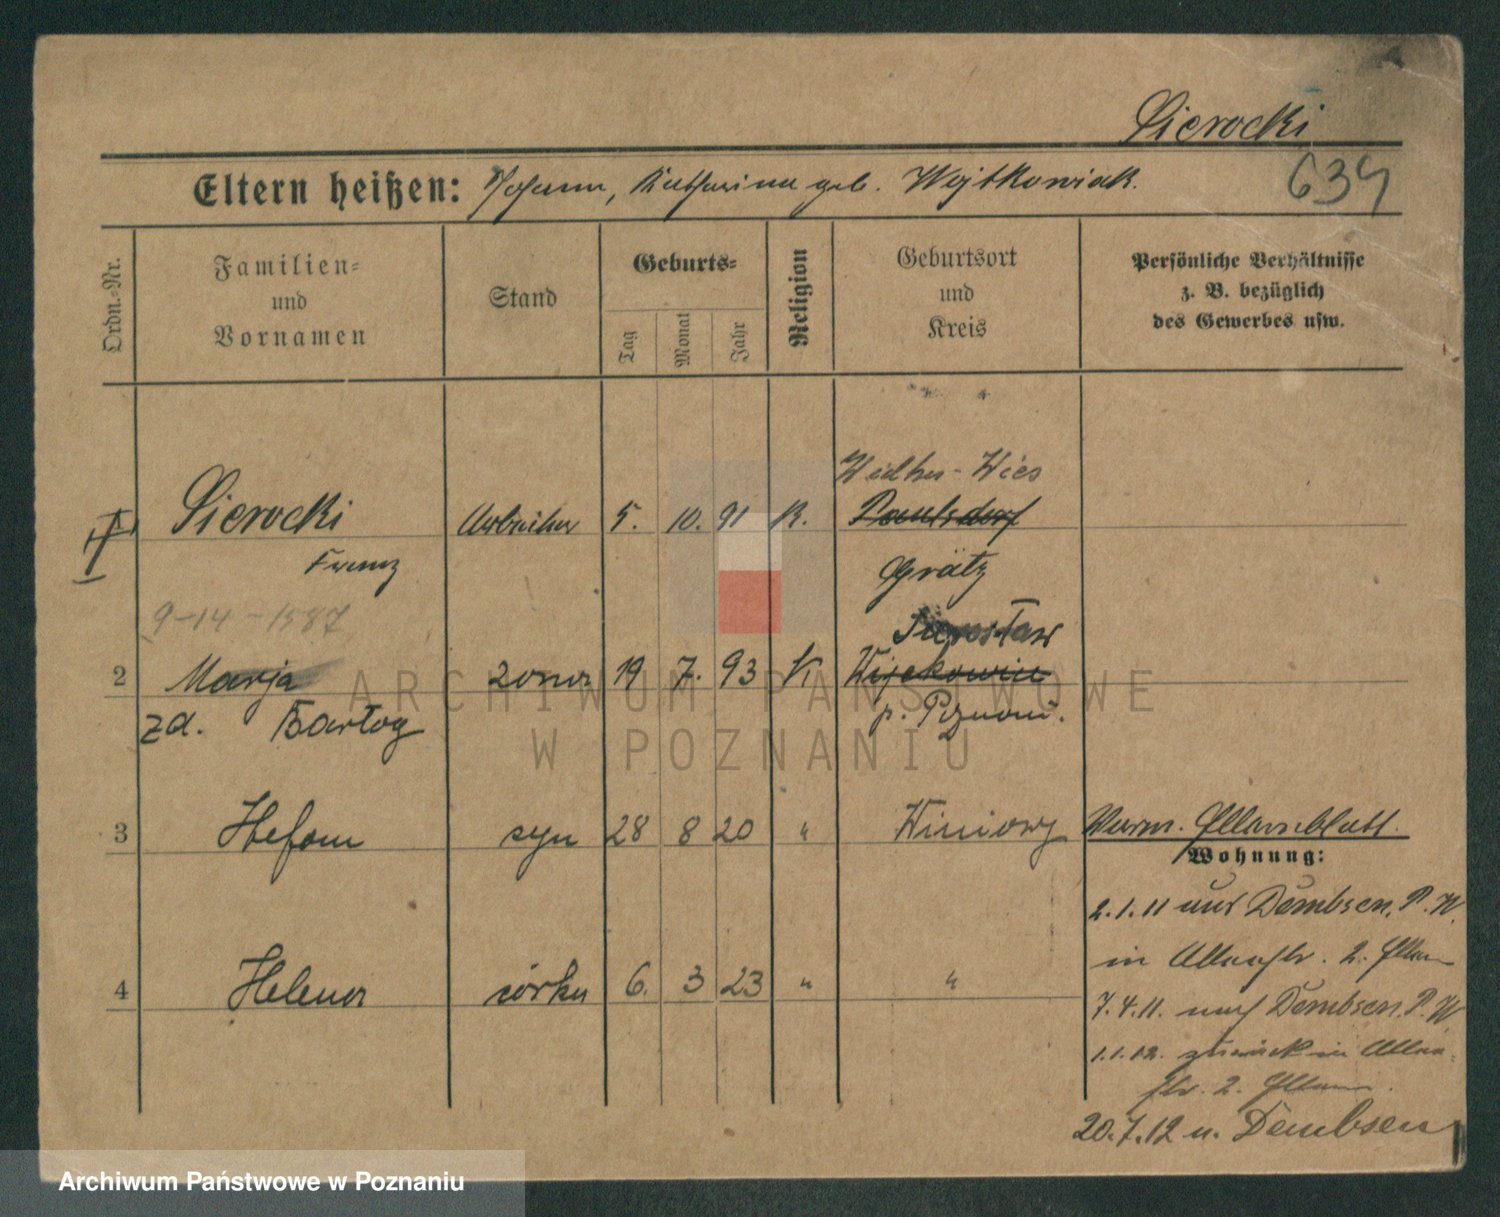 Sierocki
Eltern heißen: Johann, Katharina geb. Wojtkowiak.
634
Ordn.-Nr.
Familien-
und
Vornamen
Stand
Geburts-
Tag
Monat
Jahr
Religion
Geburtsort
und
Kreis
Persönliche Verhältnisse
z. B. bezüglich
des Gewerbes usw.
Sierocki Arbeiter 5. 10. 91 K. Paulsdorf
Franz Grätz
9-14-1887
2 Marja żona 19 7. 93 K
zd. Bartog p. Poznań.
3 Stefan syn 28 8 20 " Winiary
Wohnung:
2.1.11 aus Dembsen, P. W.
in 2.
4 Helena córka 6. 3 23 " "
7.4.11. nach Dembsen. P. W
1.1.12. zurück in
str. 2.
20.7.12 n. Dembsen
ARCHIWUM PAŃSTWOWE
W POZNANIU
Archiwum Państwowe w Poznaniu